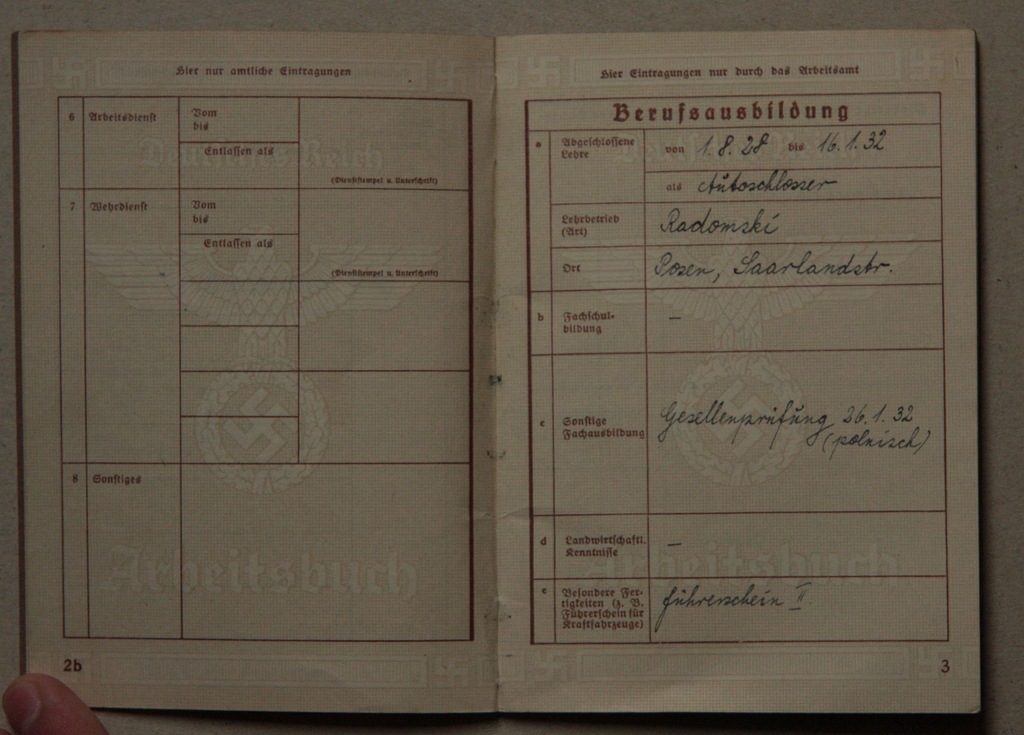 Hier nur amtliche Eintragungen
6 Arbeitsdienst
Vom
bis
Entlassen als
(Dienststempel u. Unterschrift)
7 Wehrdienst
Vom
bis
Entlassen als
(Dienststempel u. Unterschrift)
8 Sonstiges
Deutsches Reich
Arbeitsbuch
2b
Hier Eintragungen nur durch das Arbeitsamt
Berufsausbildung
a Abgeschlossene
Lehre
von 1.8.28 bis 16.1.32
als Autoschlosser
Lehrbetrieb
(Art)
Radomski
Ort
Posen, Saarlandstr.
b Fachschul-
bildung
—
c Sonstige
Fachausbildung
Gesellenprüfung 26.1.32
(polnisch)
d Landwirtschaftl.
Kenntnisse
—
e Besondere Fer-
tigkeiten (z. B.
Führerschein für
Kraftfahrzeuge)
Führerschein II.
Deutsches Reich
Arbeitsbuch
3